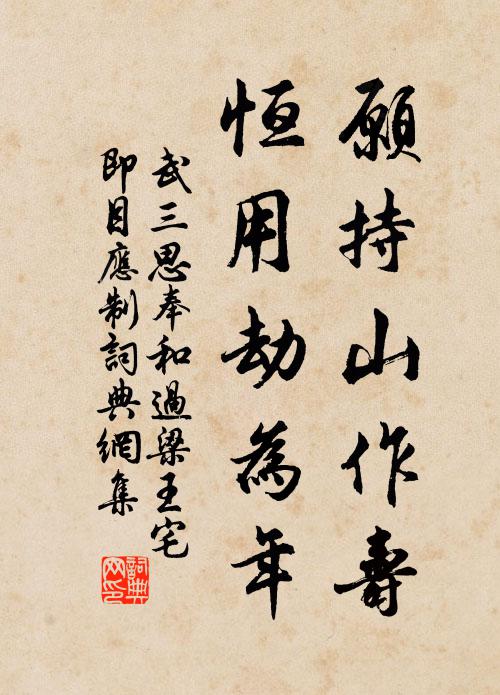 願持山作壽
恒用劫為年
武三思奉和過梁王宅
即目應制詞典網集
詞典
网印